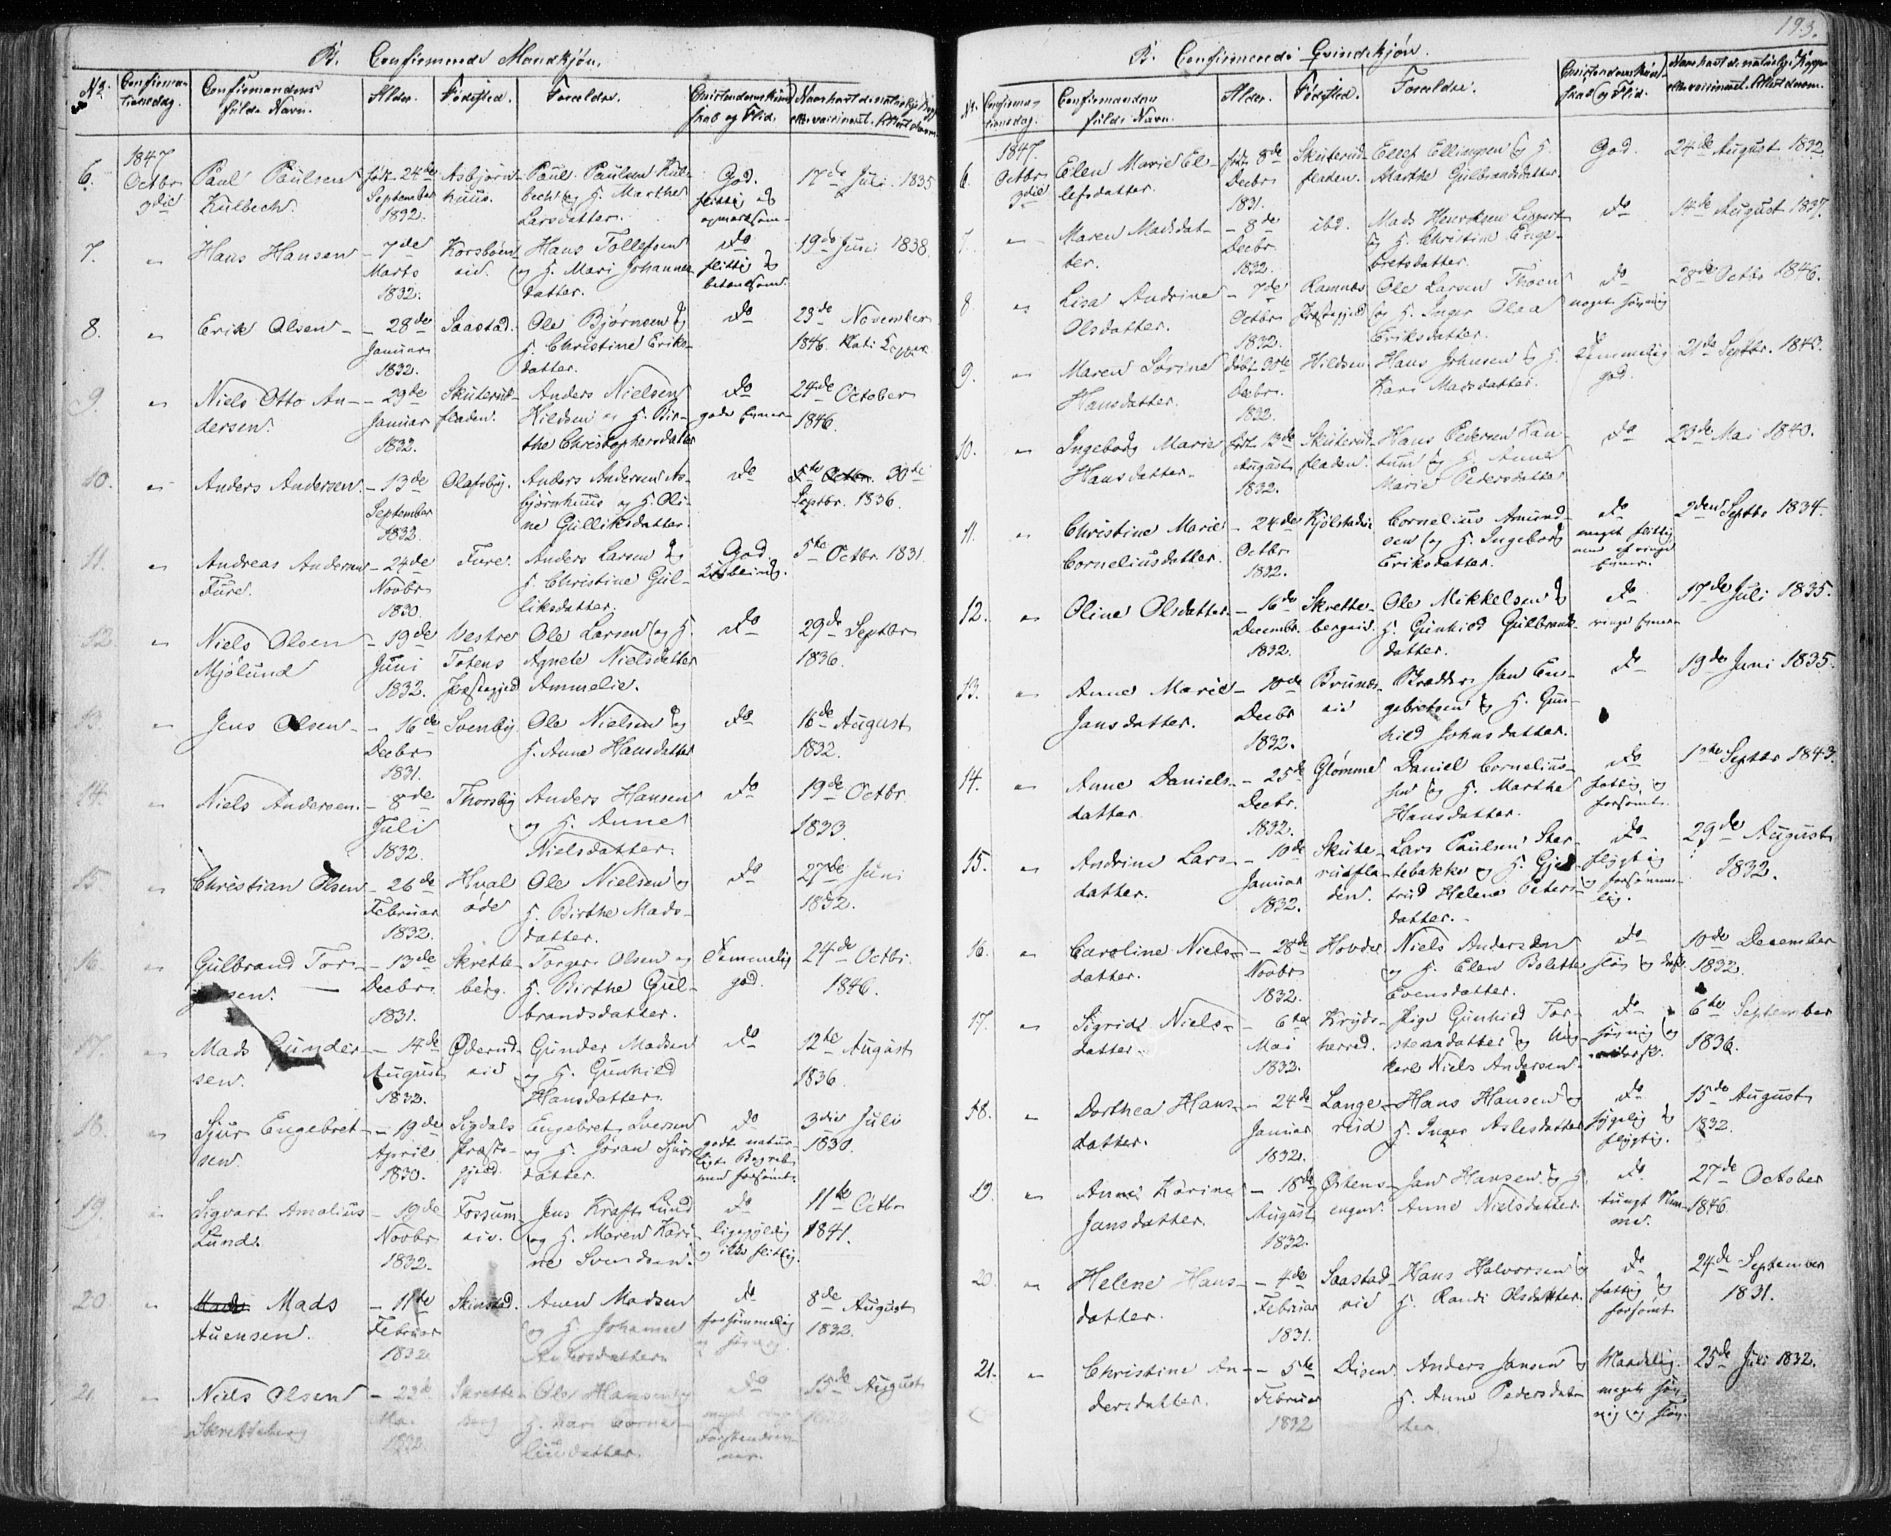 193.
B. Confirmerede Mandkjøn.
No. Confirmationsdag. Confirmandens fulde Navn. Alder. Fødested. Forældre. Christendoms Kundskab og Flid. Naar havt de naturlige Kopper eller vaccineret. Attest derom.
6. 1847 Octbr 3die Paul Paulsen Kulbech. født 24de September 1832. Asbjørnhuus. Paul Paulsen Kulbech og H. Marthe Larsdatter. God. flittig og opmærksom 17de Juli 1835
7. " Hans Hansen – 7de Marts 1832. Korsbøen eid. Hans Tollefsen og H. Mari Johannesdatter. do flittig og betænksom. 19de Juni 1838.
8. " Erik Olsen – 28de Januar 1832. Saastad. Ole Bjørnsen og H. Christine Eriksdatter. do 23de November 1846.
9. " Niels Otto Andersen. – 29de Januar 1832. Skuterudfladen. Anders Nielsen Hildsen og H. Birthe Christophersdatter do gode Evner 24de October 1846.
10. " Anders Andersen. – 13de September 1832. Olafsby. Anders Andersen Asbjørnhuus og H. Oline Gulliksdatter. do 30te Septbr. 1836.
11. " Andreas Andersen Fure. – 24de Novbr 1830. Fure. Anders Larsen og H. Christine Gulliksdatter. God. 5te Octbr. 1831.
12 " Niels Olsen Mjølund – 19de Juni 1832. Vestre Totens Præstegjeld Ole Larsen og H. Agnete Nielsdatter Ammelie. do 29de Septbr 1836.
13. " Jens Olsen – 16de Decbr 1831. Svenby. Ole Nielsen og H. Anne Hansdatter do 16de August 1832.
14. " Niels Andersen. – 8de Juli 1832. Thorsby Anders Hansen og H. Anne Nielsdatter. do 19de Octbr. 1833.
15 " Christian Olsen – 26de Februar 1832. Hval øde Ole Nielsen og H. Birthe Madsdatter. do 27de Juni 1832.
16. " Gulbrand Torgersen. – 13de Decbr. 1831. Skretteberg. Torger Olsen og H. Birthe Gulbrandsdatter. Temmelig god. 24de Octbr. 1846.
17. " Mads Gundersen. – 14de August 1832. Øderud eid Gunder Madsen og H. Gunhild Hansdatter. do 12te August 1836.
18. " Sjur Engebretsen. – 19de April 1830. Sigdals Præstegjeld. Engebret Iversen og H. Jøran Sjursdatter. do godt naturligt Begreb men forsømt. 3die Juli 1830.
19. " Sigvart Amalius Lund. – 19de Novbr 1832. Fossum eie. Jens Kraft Lund og H. Maren Karine Svendsen. do ligegyldig og ikke flittig. 11te Octbr 1841.
20 " Mads Auensen. – 11te Februar 1832 Skinstad. Auen Madsen og H. Johanne Andersdatter do forsømmelig 8de August 1832.
21 " Niels Olsen Skretteberg – 23de Mai 1832 Skretteberg Ole Hansen og H. Kari Corneliusdatter. do 15de August
B. Confirmerede Qvindekjøn.
No. Confirmationsdag. Confirmandens fulde Navn. Alder. Fødested. Forældre. Christendoms Kundskab og Flid. Naar havt de naturlige Kopper eller vaccineret. Attest derom.
6. 1847. Octbr 3die Elen Marie Ellefsdatter. født 8de Decbr 1831. Skuterudfladen. Ellef Ellingsen og H. Marthe Gulbrandsdatter. God. 24de August 1832
7. " Maren Madsdatter. – 8de Decbr. 1832. ibd. Mads Henriksen Lippert og H. Christine Engebretsdatter. do 14de August 1837.
8 " Lisa Andrine Olsdatter. – 7de Octbr 1832. Ramnes Præstegjeld Ole Larsen Thoen og H. Inger Olea Eriksdatter. do noget sløvsig 28de Octbr 1846.
9. " Maren Sørine Hansdatter. døbt 30te Decbr. 1832. Hildsen Hans Johnsen og H. Kari Madsdatter. Temmelig god. 21de Septbr. 1843.
10. " Ingeborg Marie Hansdatter. født 13de August 1832. Skuterudfladen. Hans Pedersen og H. Anne Marie Pedersdatter do 23de Mai 1840.
11. " Christine Marie Corneliusdatter. – 24de Octbr 1832. Kjølstad Cornelius Amundsen og H. Ingeborg Eriksdatter. do meget flittig men af ringe Evner. 2den Septbr 1834.
12. " Oline Olsdatter – 16de Decembr. 1832. Skrettebergeid. Ole Mikkelsen og H. Gunhild Gulbrandsdatter. do ringe Evner 17de Juli 1835.
13. " Anne Marie Jansdatter. – 10de Decbr 1832. Brunæs eid Skrædder Jan Engebretsen og H. Gunhild Johnsdatter. do 19de Juni 1835.
14. " Anne Danielsdatter – 25de Decbr. 1832. Glømme Daniel Corneliussen og H. Marthe Hansdatter. do fattig og forsømt. 1ste Septbr 1843.
15. " Andrine Larsdatter. – 10de Januar 1832. Skuterudfladen. Lars Paulsen Stertebakke og H. Gjertrud Helene Petersdatter. do flygtig og forsømmelig. 29de August 1832.
16. " Caroline Nielsdatter. – 28de Novbr 1832. Hovde Niels Andersen og H. Elen Bolette Evensdatter. do sløv og 10de December 1832.
17. " Sigrid Nielsdatter. – 6te Mai 1832. Krydsherred. Pige Gunhild Torstensdatter og Ungkarl Niels Andersen. do 6te September 1836.
18. " Dorthea Hansdatter. – 24de Januar 1832. Langerud Hans Hansen og H. Inger Aslesdatter do sygelig og flygtig. 15de August 1832.
19. " Anne Karine Jansdatter. – 18de August 1832. Østensengen. Jan Hansen og H. Anne Nielsdatter. do tungt Nemme. 27de October 1846.
20. " Helene Hansdatter. – 4de Februar 1831. Saastad eid Hans Halvorsen og H. Randi Olsdatter. do fattig og forsømt 24de September 1831.
21. " Christine Andersdatter. – 5te Februar 1832 Disen Anders Jansen og H. Anne Pedersdatter. Maadelig. meget og sløv. 25de Juli 1832.